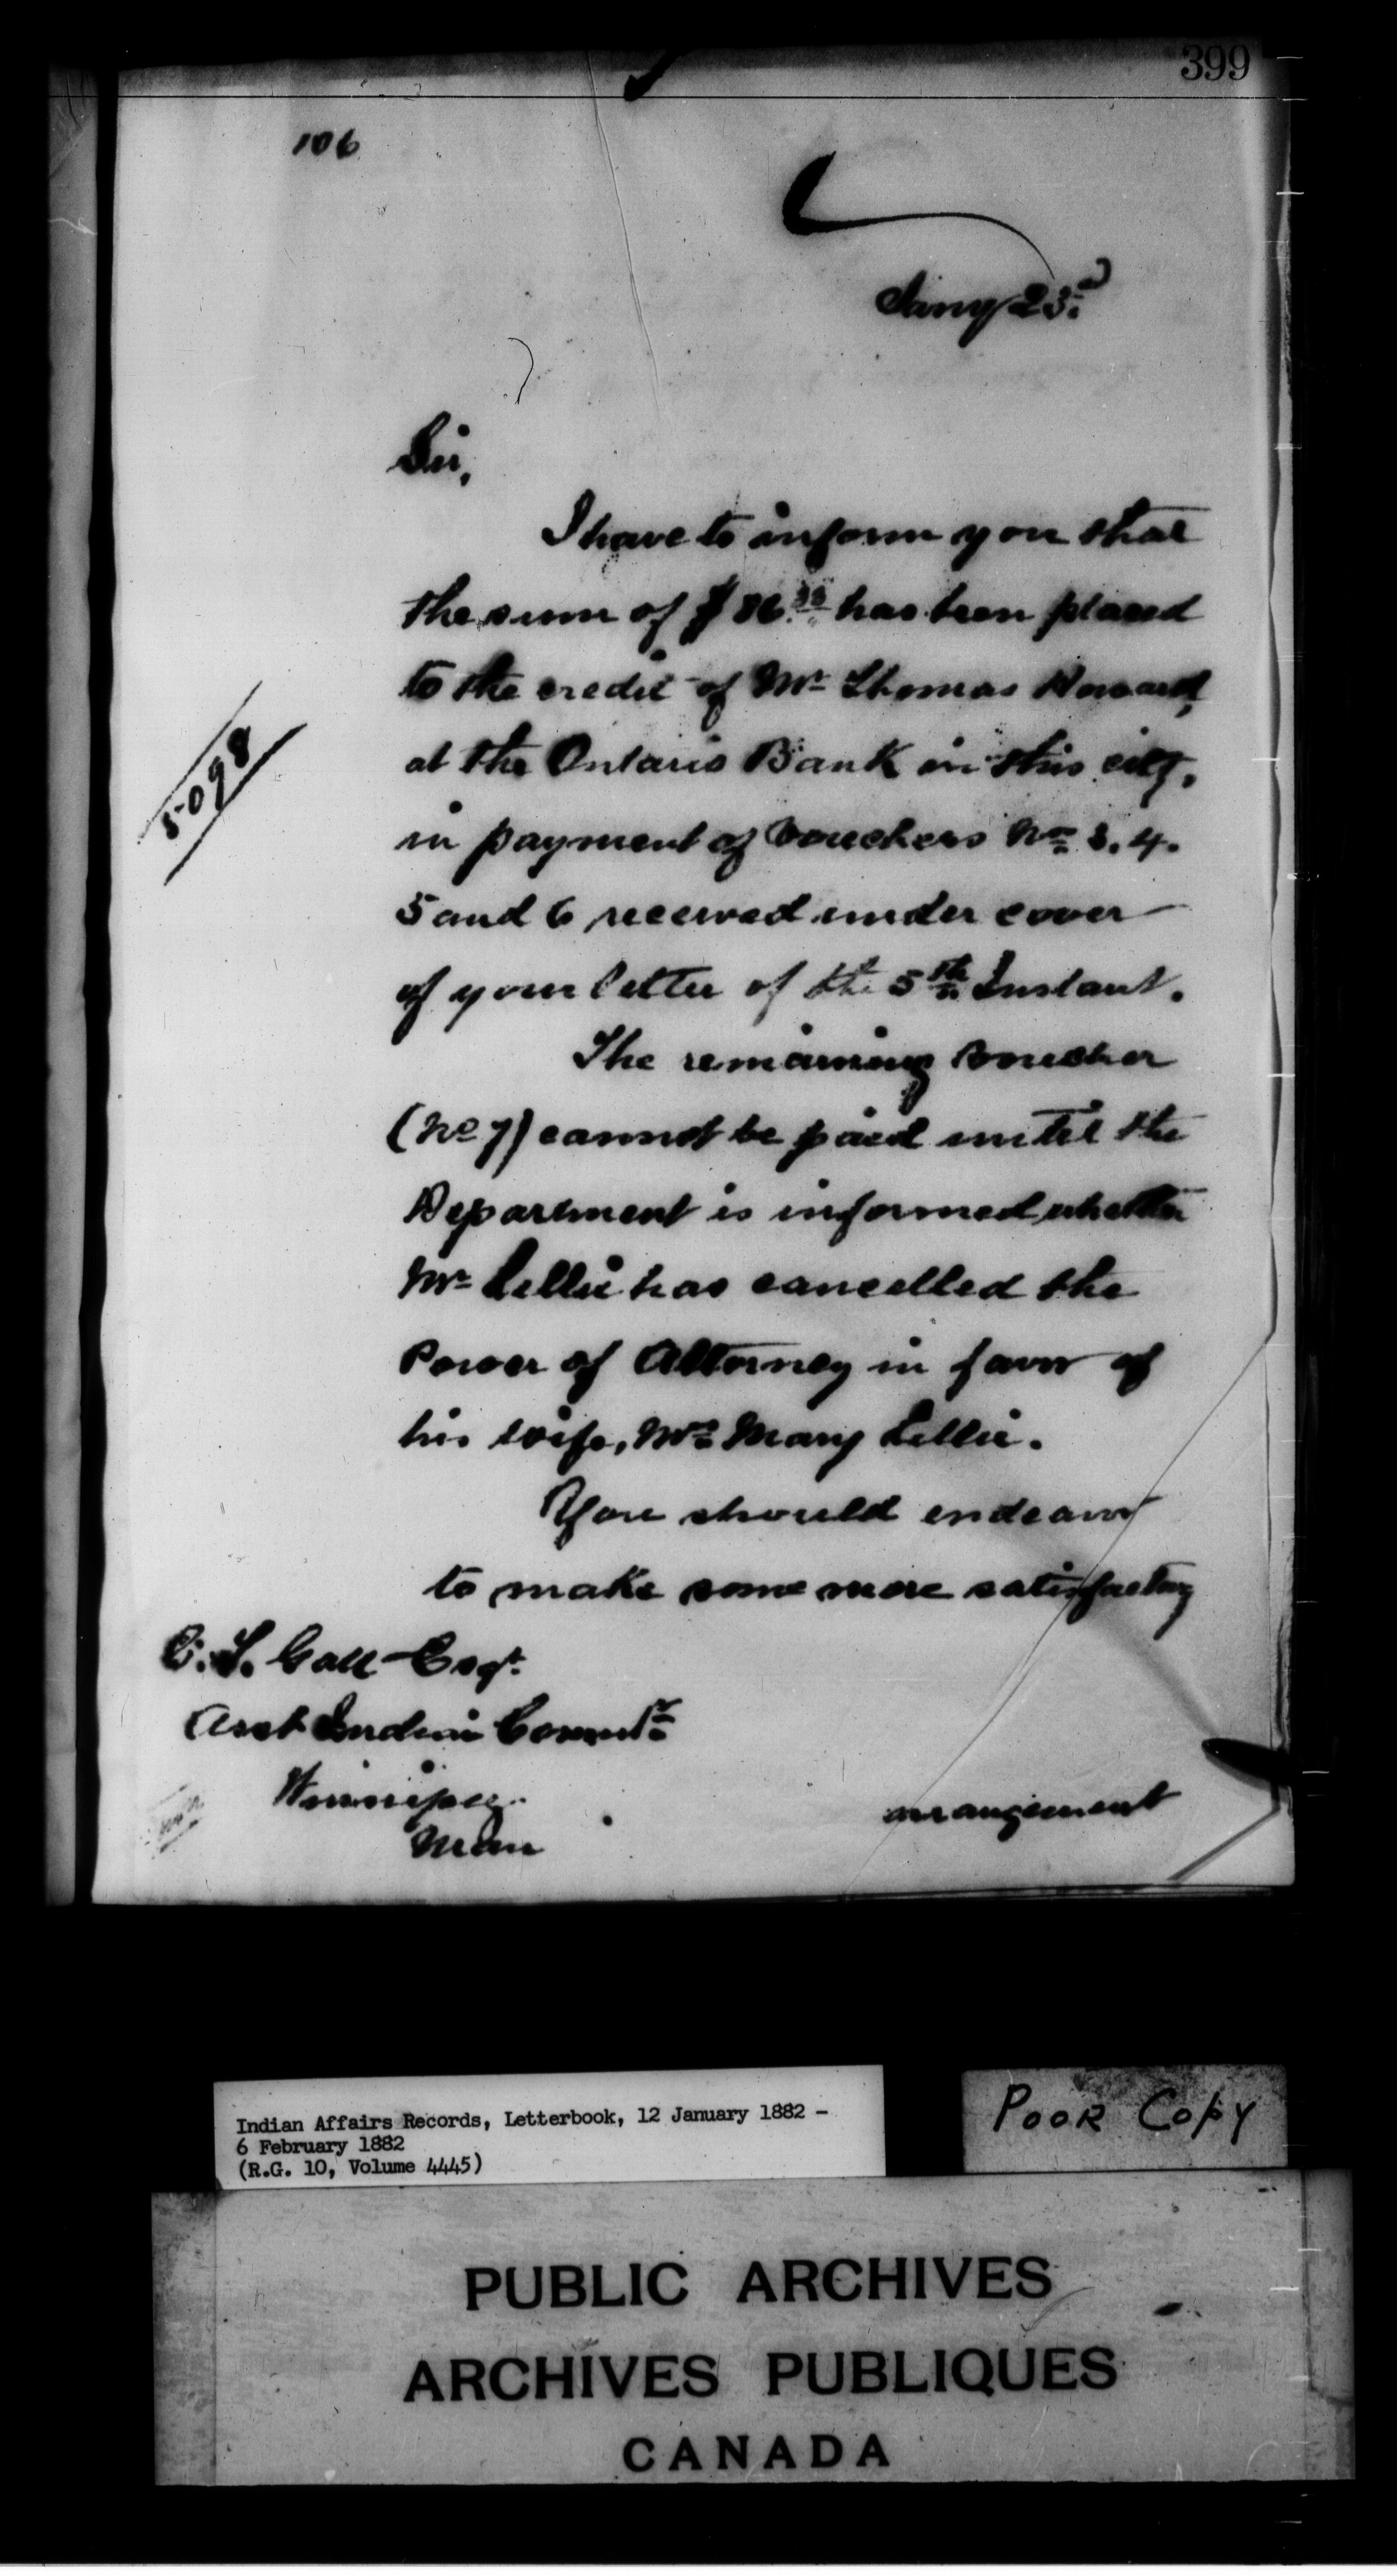 399
106
Jany 23d
Sir,
I have to inform you that
the sum of $86.33 has been placed
to the credit of Mr Thomas Howard,
at the Ontario Bank in this city,
in payment of vouchers Nos 3. 4.
5 and 6 received under cover
of your letter of the 5th Instant.
The remaining voucher
(No 7) cannot be paid until the
Department is informed whether
Mr Lellie has cancelled the
Power of Attorney in favor of
his wife, Mrs Mary Lellie.
You should endeavor
to make some more satisfactory
5098
E. T. Galt Esqr.
Asst Indian Commr
Winnipeg.
Man
arrangement
Indian Affairs Records, Letterbook, 12 January 1882 -
6 February 1882
(R.G. 10, Volume 4445)
POOR COPY
PUBLIC ARCHIVES
ARCHIVES PUBLIQUES
CANADA